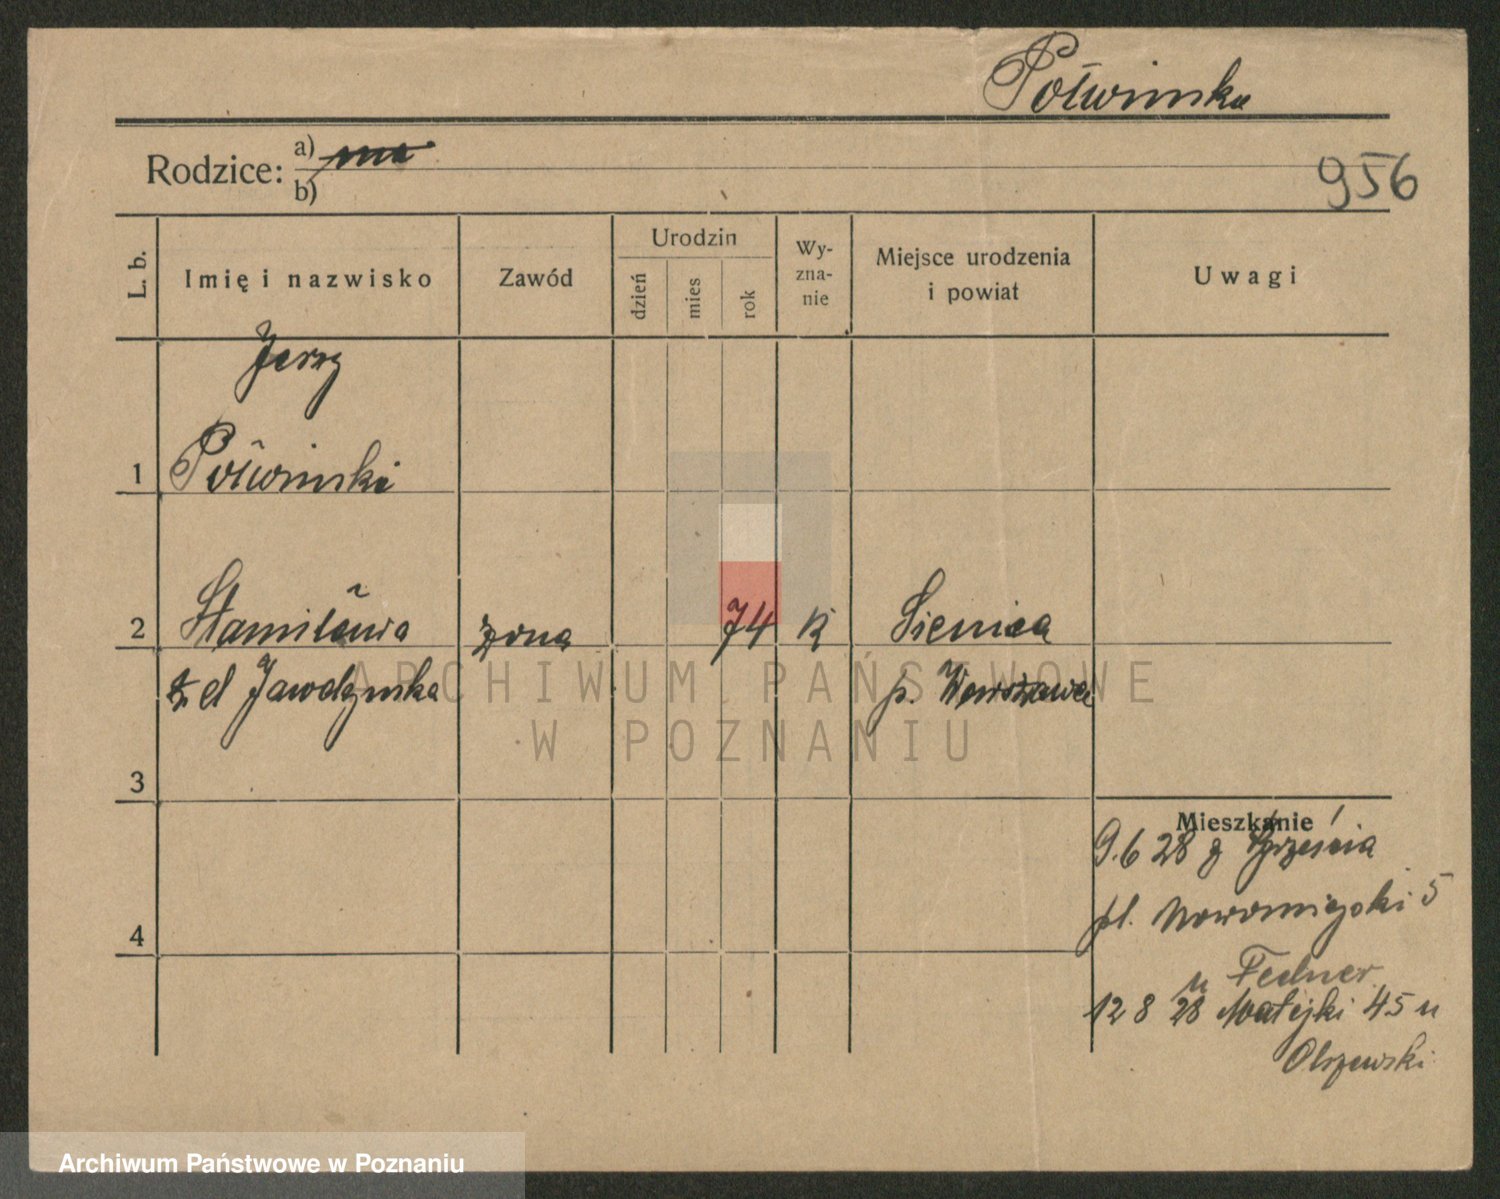 Połwinska
Rodzice: a)
b)
956
L. b.
Imię i nazwisko
Zawód
Urodzin
dzień
mies
rok
Wy-
zna-
nie
Miejsce urodzenia
i powiat
Uwagi
Jerzy
1 Połwinski
2 żona 74 K Sienica
z d Jawdynska p. Warszawa
3
4
Mieszkanie
9.6 28 z
pl. Nowomiejski 5
u Fedner
12 8 28 Matejki 45 u
Olszewski
ARCHIWUM PAŃSTWOWE
W POZNANIU
Archiwum Państwowe w Poznaniu